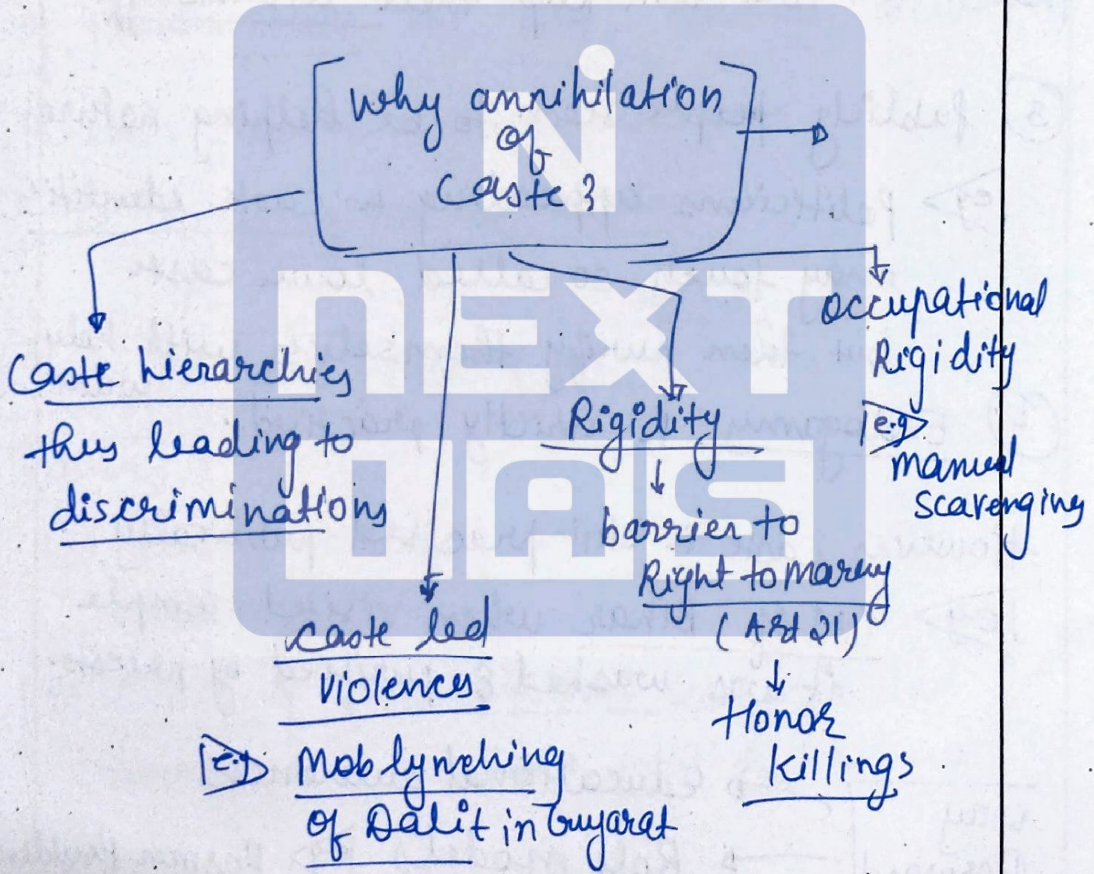 Why annihilation
of
Caste?
Caste hierarchies
thus leading to
discriminations
Caste led
violences
e.g. Mob lynching
of Dalit in Gujarat
Rigidity
barrier to
Right to marry
(Art 21)
Honor
killings
occupational
Rigidity
e.g.
manual
scavenging
N
NEXT
IAS